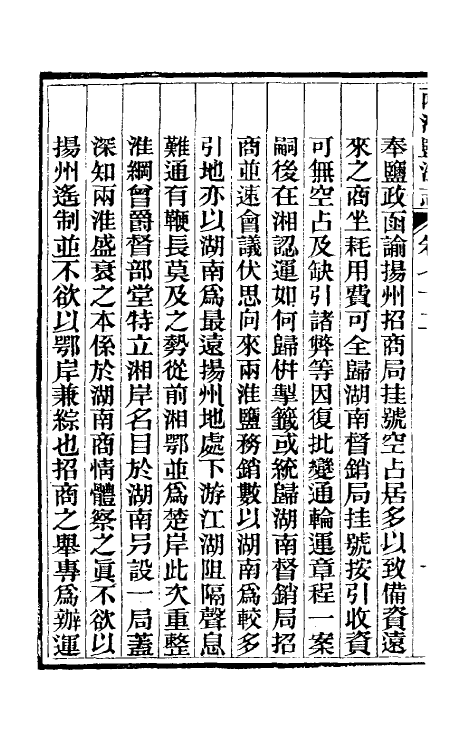 奉鹽政函諭揚州招商局挂號空占居多以致備資遠
來之商坐耗用費可全歸湖南督銷局挂號按引收資
可無空占及缺引諸弊等因復批變通輪運章程一案
嗣後在湘認運如何歸併掣籤或統歸湖南督銷局招
商並速會議伏思向來兩淮鹽務銷數以湖南為較多
引地亦以湖南為最遠揚州地處下游江湖阻隔聲息
難通有鞭長莫及之勢從前湘鄂並為楚岸此次重整
淮綱曾爵督部堂特立湘岸名目於湖南另設一局蓋
深知兩淮盛衰之本係於湖南商情體察之眞不欲以
揚州遙制並不欲以鄂岸兼綜也招商之舉專為辦運